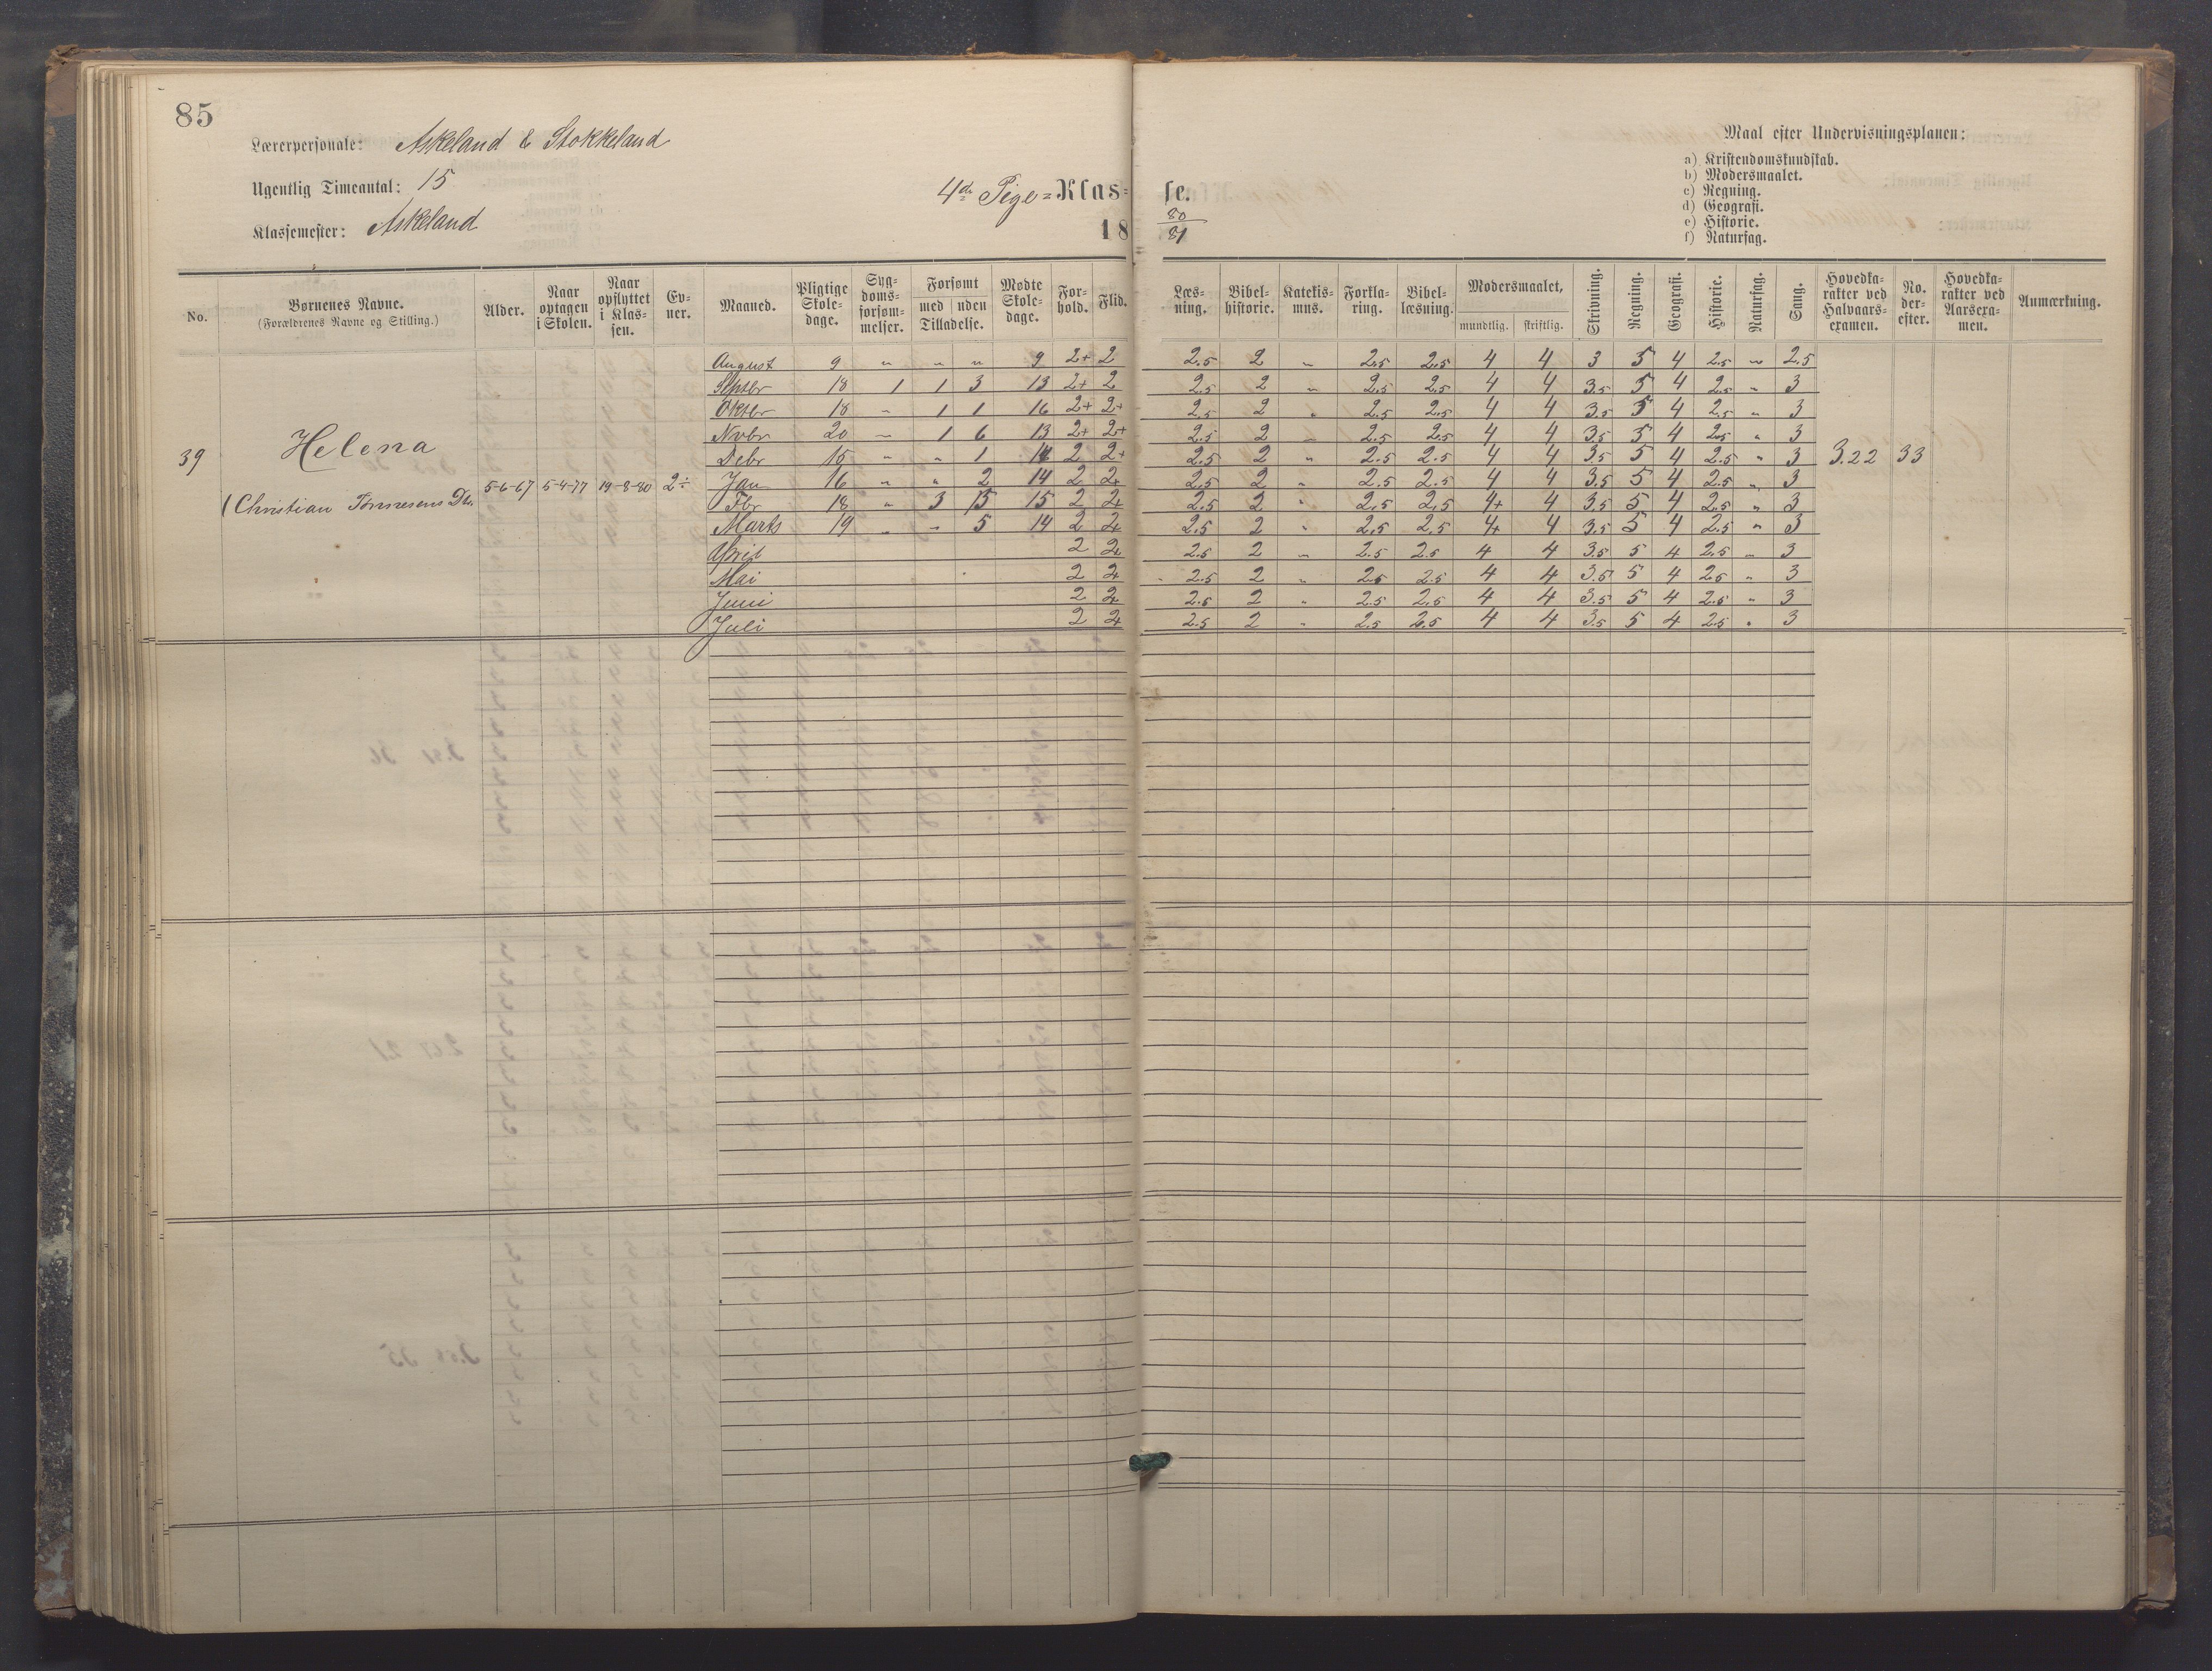 85
Lærerpersonale: Askeland & Stokkeland
Ugentlig Timeantal: 15
Klassemester: Askeland
4de Pige=Klasse.
18 80/81
Maal efter Undervisningsplanen:
a) Kristendomskundskab.
b) Modersmaalet.
c) Regning.
d) Geografi.
e) Historie.
f) Naturfag.
No. | Børnenes Navne. (Forældrenes Navne og Stilling.) | Alder. | Naar optagen i Skolen. | Naar opflyttet i Klassen. | Evner. | Maaned. | Pligtige Skoledage. | Sygdomsforsømmelser. | Forsømt med / uden Tilladelse. | Mødte Skoledage. | Forhold. | Flid. | Læsning. | Bibelhistorie. | Katekismus. | Forklaring. | Bibellæsning. | Modersmaalet, mundtlig. | skriftlig. | Skrivning. | Regning. | Geografi. | Historie. | Naturfag. | Sang. | Hovedkarakter ved Halvaarsexamen. | No. derefter. | Hovedkarakter ved Aarsexamen. | Anmærkning.
39 Helena
(Christian Tønnesens Dt. 5-6-67 5-4-77 19-8-80 2÷
3.22 33
August 9 " " " 9 2+ 2 2.5 2 " 2.5 2.5 4 4 3 5 4 2.5 " 2.5
Septbr 18 1 1 3 13 2+ 2 2.5 2 " 2.5 2.5 4 4 3.5 5 4 2.5 " 3
Oktbr 18 " 1 1 16 2+ 2+ 2.5 2 " 2.5 2.5 4 4 3.5 5 4 2.5 " 3
Nvbr 20 " 1 6 13 2+ 2+ 2.5 2 " 2.5 2.5 4 4 3.5 5 4 2.5 " 3
Debr 15 " " 1 14 2 2+ 2.5 2 " 2.5 2.5 4 4 3.5 5 4 2.5 " 3
Jan 16 " " 2 14 2 2+ 2.5 2 " 2.5 2.5 4 4 3.5 5 4 2.5 " 3
Fbr 18 " 3 15 2 2+ 2.5 2 " 2.5 2.5 4+ 4 3.5 5 4 2.5 " 3
Marts 19 " " 5 14 2 2+ 2.5 2 " 2.5 2.5 4+ 4 3.5 5 4 2.5 " 3
April 2 2+ 2.5 2 " 2.5 2.5 4 4 3.5 5 4 2.5 " 3
Mai 2 2+ 2.5 2 " 2.5 2.5 4 4 3.5 5 4 2.5 " 3
Juni 2 2+ 2.5 2 " 2.5 2.5 4 4 3.5 5 4 2.5 " 3
Juli 2 2+ 2.5 2 " 2.5 2.5 4 4 3.5 5 4 2.5 " 3